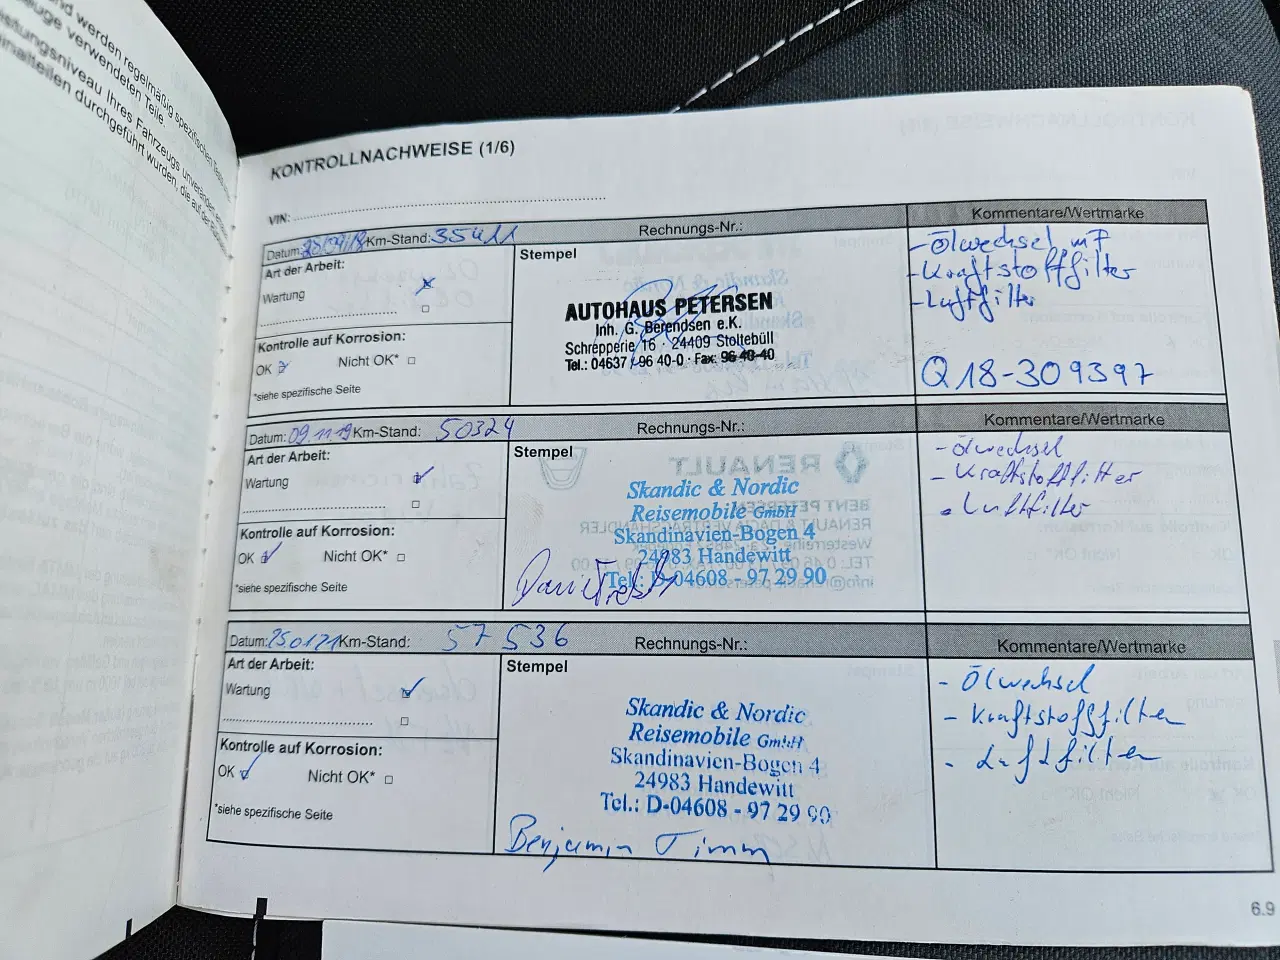 und werden regelmäßig spezifischen
zeuge verwendeten Teile.
istungsniveau Ihres Fahrzeugs unverändert
inalteilen durchgeführt wurden, die auf der
KONTROLLNACHWEISE (1/6)
VIN:
Datum: Km-Stand: 35411
Rechnungs-Nr.:
Kommentare/Wertmarke
Art der Arbeit:
Wartung
Kontrolle auf Korrosion:
OK Nicht OK*
*siehe spezifische Seite
Stempel
AUTOHAUS PETERSEN
Inh. G. Berendsen e.K.
Schrepperie 16 · 24409 Stoltebüll
Tel.: 04637 / 96 40-0 · Fax: 96 40 40
- Ölwechsel mF
- Kraftstofffilter
- Luftfilter
Q18-309397
Datum: 09.11.19 Km-Stand: 50324
Rechnungs-Nr.:
Kommentare/Wertmarke
Art der Arbeit:
Wartung
Kontrolle auf Korrosion:
OK Nicht OK*
*siehe spezifische Seite
Stempel
Skandic & Nordic
Reisemobile GmbH
Skandinavien-Bogen 4
24983 Handewitt
Tel.: D-04608 - 97 29 90
- Ölwechsel
- Kraftstofffilter
- Luftfilter
Datum: 25.01.21 Km-Stand: 57 536
Rechnungs-Nr.:
Kommentare/Wertmarke
Art der Arbeit:
Wartung
Kontrolle auf Korrosion:
OK Nicht OK*
*siehe spezifische Seite
Stempel
Skandic & Nordic
Reisemobile GmbH
Skandinavien-Bogen 4
24983 Handewitt
Tel.: D-04608 - 97 29 90
Benjamin Timm
- Ölwechsel
- Kraftstofffilter
- Luftfilter
6.9